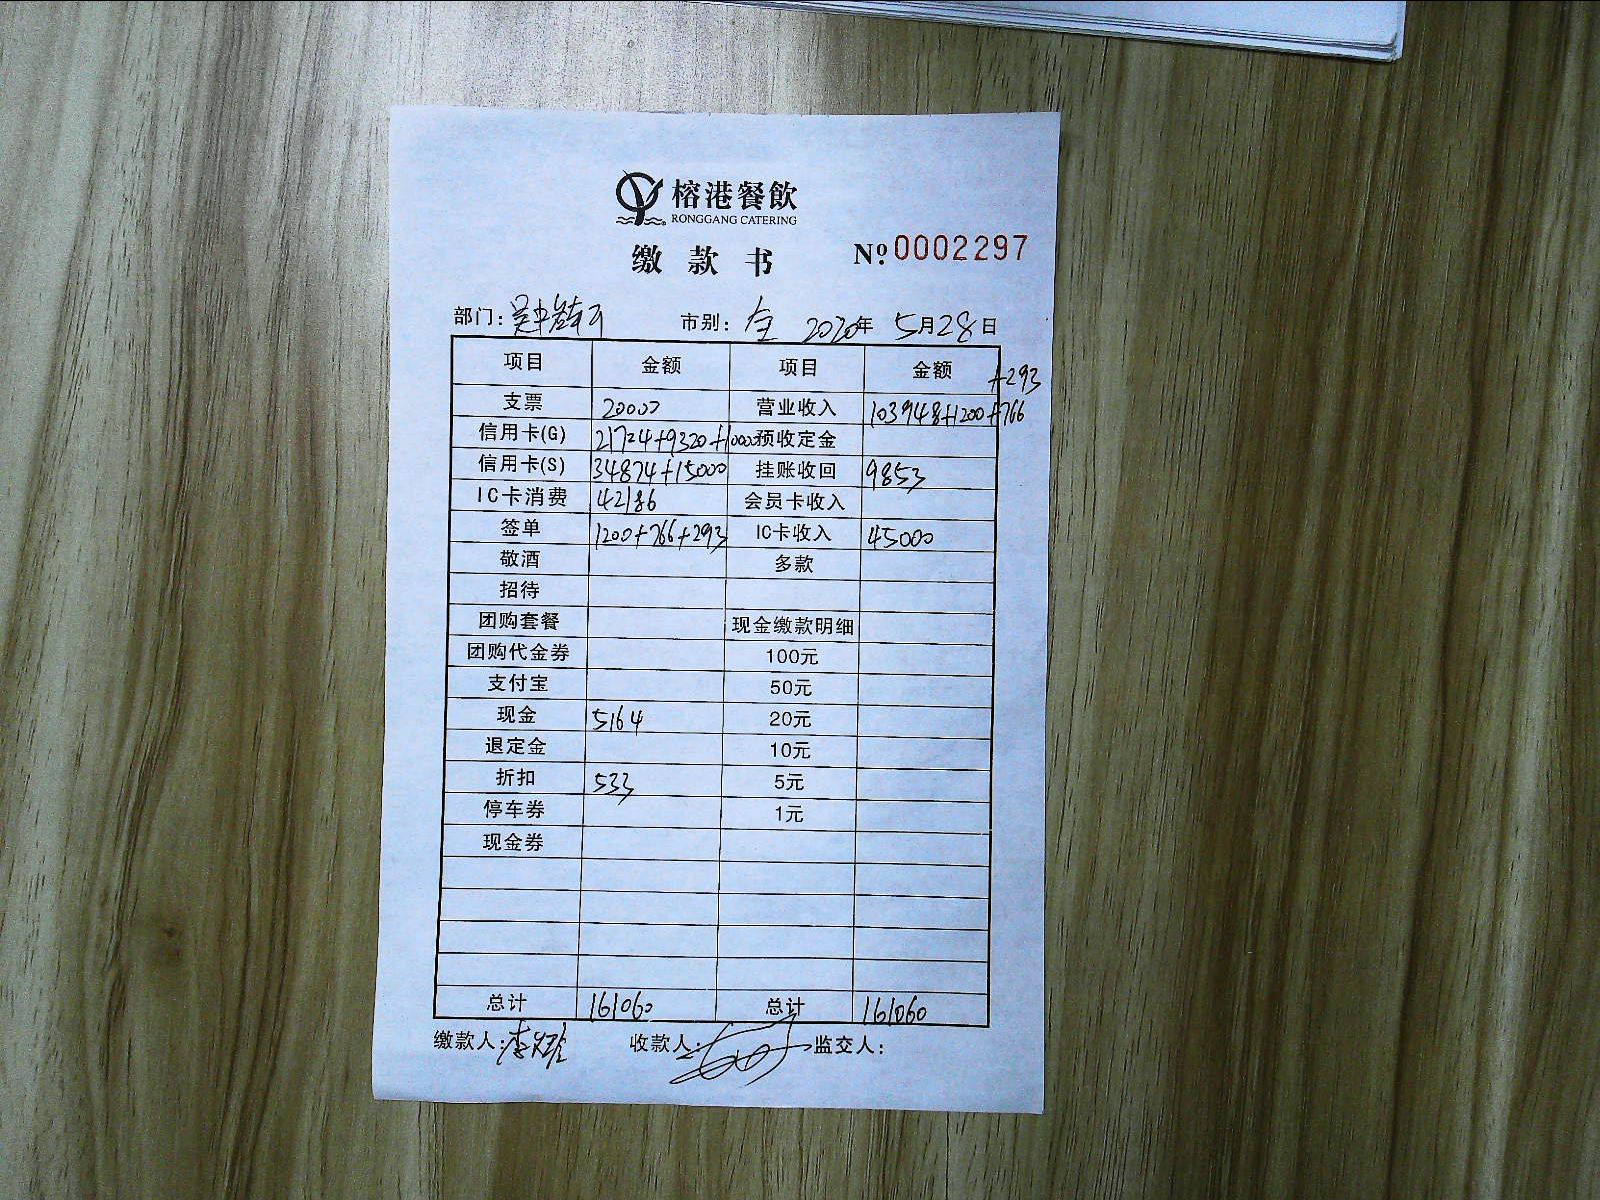 榕港餐飲
RONGGANG CATERING
缴款书 №:0002297
部门: 市别: 全 2020年 5月28日
项目 金额 项目 金额 +293
支票 20000 营业收入 103948+1200+766
信用卡(G) 21724+9320+10000 预收定金
信用卡(S) 34874+15000 挂账收回 9853
IC卡消费 42186 会员卡收入
签单 1200+766+293 IC卡收入 45000
敬酒 多款
招待
团购套餐 现金缴款明细
团购代金券 100元
支付宝 50元
现金 5164 20元
退定金 10元
折扣 533 5元
停车券 1元
现金券
总计 161060 总计 161060
缴款人: 收款人: 监交人: